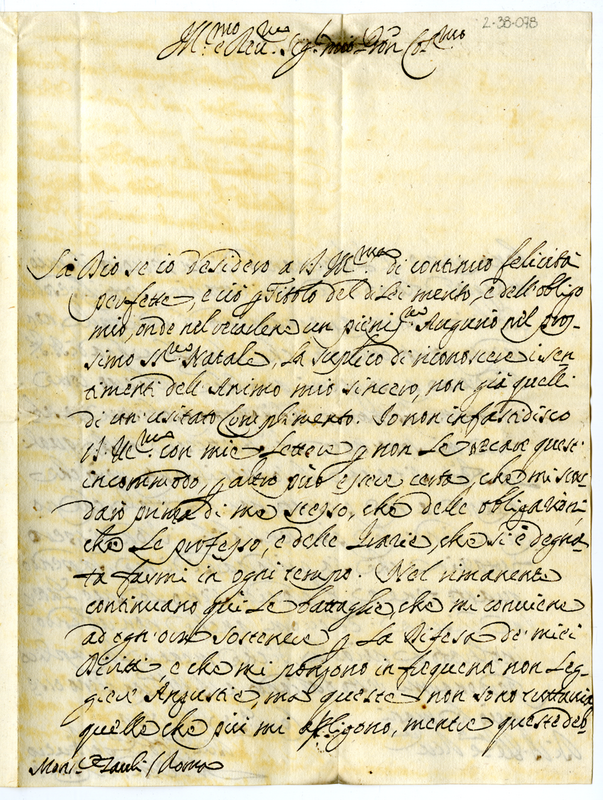 2-38-078
Ill.mo e Rev.mo Sig.r mio Pron Col.mo
Sà Dio se io desidero a V. Ill.ma di continuo felicità
perfette, e ciò p titolo del di Lei merito, e dell'obligo
mio, onde nel un Augurio nel pros-
simo SS.mo Natale, La suplico di riconoscere i sen
timenti dell'Animo mio sincero, non già quelli
di un usitato Complimento. Io non infastidisco
V. Ill.ma con mie Lettere p non Le recare quest'
incommodo, p altro può essere certa, che mi scor
darò prima di me stesso, che delle obligationi,
che Le professo, e delle Grazie, che si è degna
ta farmi in ogni tempo. Nel rimanente
continuano qui Le battaglie, che mi conviene
ad ogn'ora sostenere p La Difesa de' miei
Diritti, e che mi pongono in frequenti non Leg-
giere Angustie, ma queste non sono tuttavia
quelle che più mi affligono, mentre queste deb
Mons.r Roma